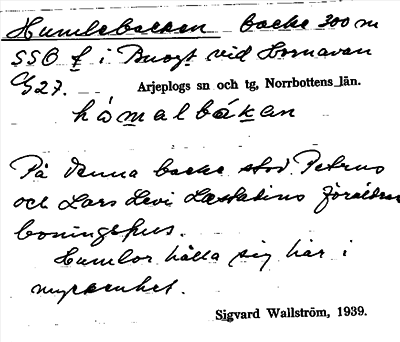 Humlebacken backe 300 m
SSO f i Buogt vid Hornavan
C/S27. Arjeplogs sn och tg, Norrbottens län.
hòmalbákan
På denna backe stod Petrus
och Lars Levi Læstadius föräldra
boningshus.
Humlor hålla sig här i
myckenhet.
Sigvard Wallström, 1939.